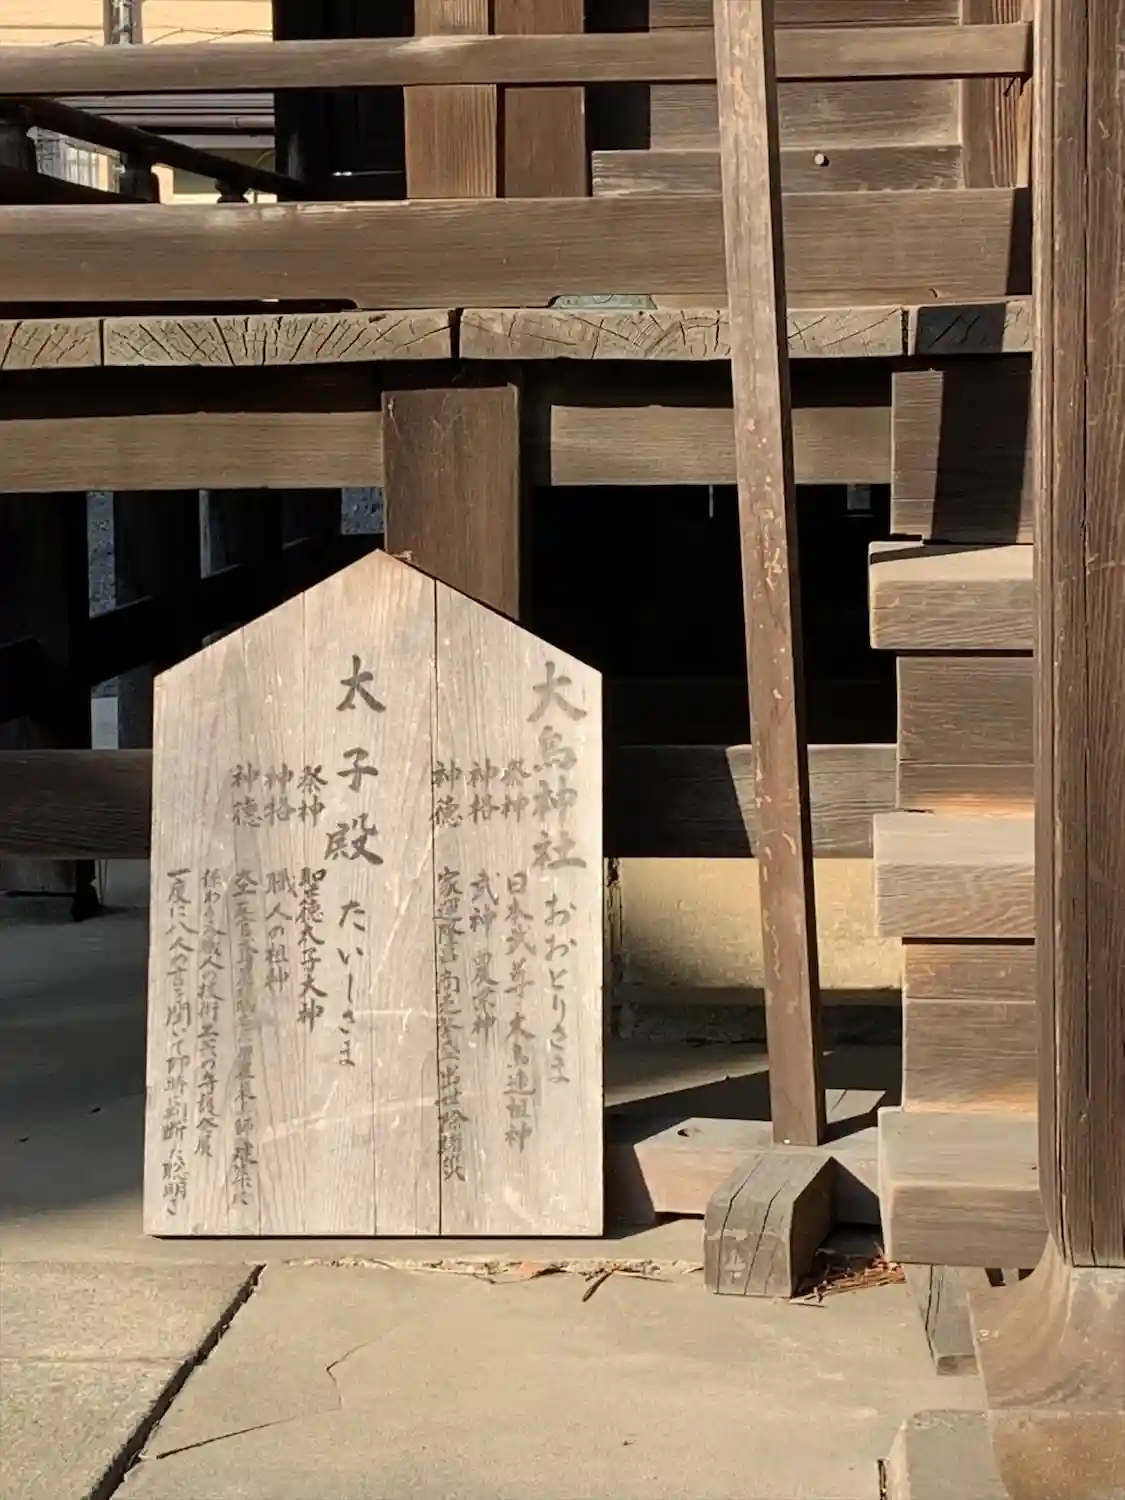 大鳥神社 おおとりさま
祭神 日本武尊・大鳥連祖神
神格 武神 農業神
神徳 家運隆昌 商売繁盛 出世 除諸災
太子殿 たいしさま
祭神 聖徳太子大神
神格 職人の祖神
神徳 建築に
係わる職人の技術工芸の守護発展
一度に八人の言を聞いて即時判断した聡明さ